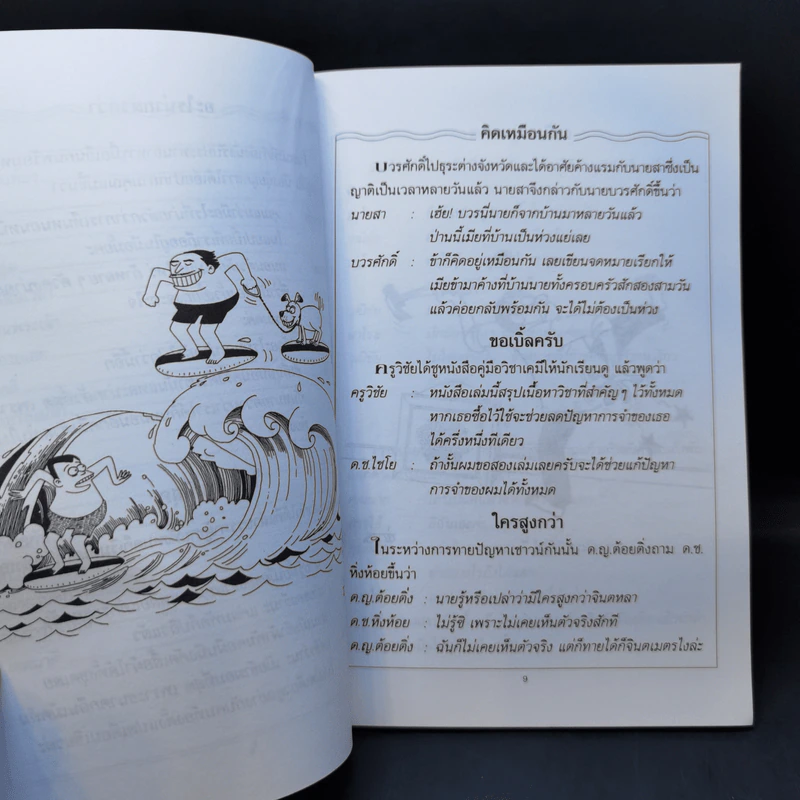 คิดเหมือนกัน
บวรศักดิ์ไปธุระต่างจังหวัดและได้อาศัยค้างแรมกับนายสาซึ่งเป็น
ญาติเป็นเวลาหลายวันแล้ว นายสาจึงกล่าวกับนายบวรศักดิ์ขึ้นว่า
นายสา : เฮ้ย! บวรนี่นายก็จากบ้านมาหลายวันแล้ว
ป่านนี้เมียที่บ้านเป็นห่วงแย่เลย
บวรศักดิ์ : ข้าก็คิดอยู่เหมือนกัน เลยเขียนจดหมายเรียกให้
เมียข้ามาค้างที่บ้านนายทั้งครอบครัวสักสองสามวัน
แล้วค่อยกลับพร้อมกัน จะได้ไม่ต้องเป็นห่วง
ขอเบิ้ลครับ
ครูวิชัยได้ชูหนังสือคู่มือวิชาเคมีให้นักเรียนดู แล้วพูดว่า
ครูวิชัย : หนังสือเล่มนี้สรุปเนื้อหาวิชาที่สำคัญๆ ไว้ทั้งหมด
หากเธอซื้อไว้ใช้จะช่วยลดปัญหาการจำของเธอ
ได้ครึ่งหนึ่งทีเดียว
ด.ช.ไชโย : ถ้างั้นผมขอสองเล่มเลยครับจะได้ช่วยแก้ปัญหา
การจำของผมได้ทั้งหมด
ใครสูงกว่า
ในระหว่างการทายปัญหาเชาวน์กันนั้น ด.ญ.ต้อยติ่งถาม ด.ช.
หิ่งห้อยขึ้นว่า
ด.ญ.ต้อยติ่ง : นายรู้หรือเปล่าว่ามีใครสูงกว่าจินตหลา
ด.ช.หิ่งห้อย : ไม่รู้ซิ เพราะไม่เคยเห็นตัวจริงสักที
ด.ญ.ต้อยติ่ง : ฉันก็ไม่เคยเห็นตัวจริง แต่ก็ทายได้ก็จินตเมตรไงล่ะ
9